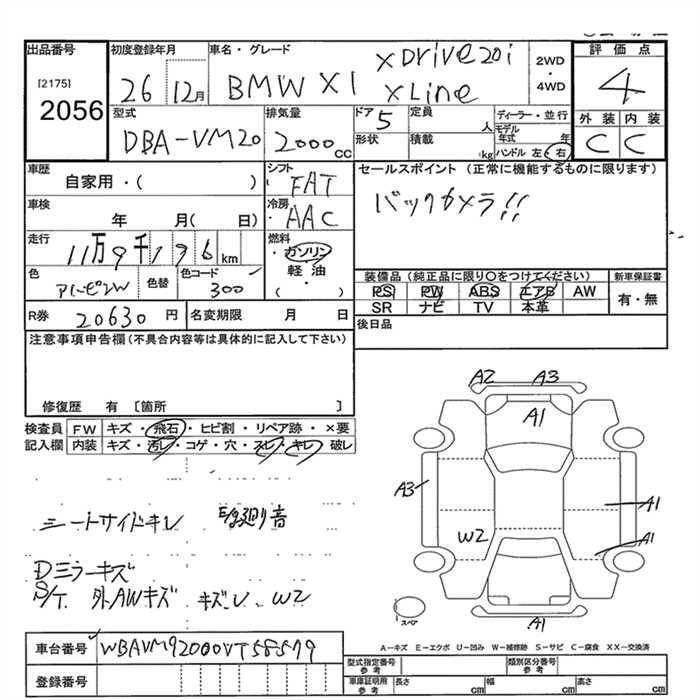 出品番号 初度登録年月 車名・グレード 評価点
[2175] 2056
26 12月 BMW X1 xDrive20i xLine
2WD・4WD 4
型式 排気量 ドア 定員 ディーラー・並行 外装 内装
DBA-VM20 2000cc 5 人 モデル年式 年 C C
形状 積載 kg ハンドル 左・右
車歴 シフト セールスポイント (正常に機能するものに限ります)
自家用・( ) FAT バックカメラ!!
車検 年 月( 日) 冷房 AAC
走行 11万9千196km 燃料 ・ガソリン 軽油・( )
色 色替 色コード 装備品(純正品に限り○をつけてください) 新車保証書
300 PS PW ABS エアB AW 有・無
SR ナビ TV 本革
R券 20630円 名変期限 月 日 後日品
注意事項申告欄(不具合内容等は具体的に記入して下さい)
修復歴 有 〔箇所 〕
検査員 FW キズ・飛石・ヒビ割・リペア跡・×要
記入欄 内装 キズ・汚レ・コゲ・穴・スレ・キレ・破レ
A2 A3
A1
A3
A1
W2 A1
スペア A1
シートサイドキレ
Dミラーキズ
S/T 外AWキズ キズ W2
A−キズ E−エクボ U−凹み W−補修跡 S−サビ C−腐食 XX−交換済
車台番号 WBAVM92000VT58579
登録番号
型式指定番号 参考 類別区分番号 参考
車庫証明用 参考 長さ cm 幅 cm 高さ cm